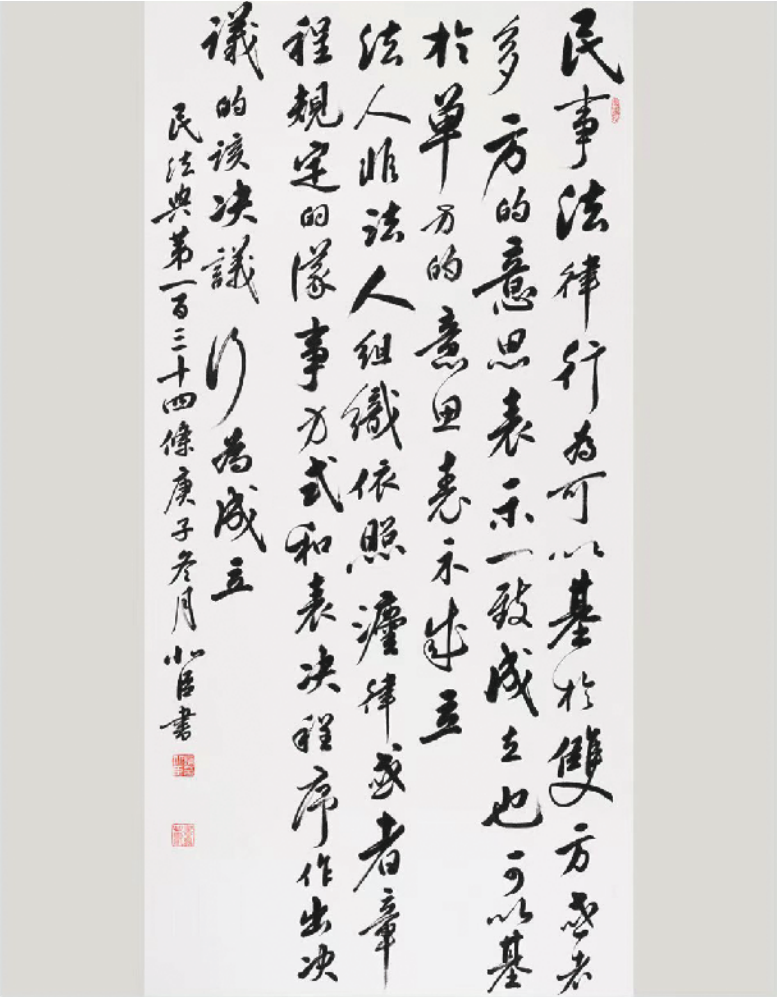 民事法律行为可以基於雙方或者
多方的意思表示一致成立也可以基
於單方的意思表示成立
法人非法人組織依照灋律或者章
程規定的議事方式和表决程序作出决
議的該决議行為成立
民法典第一百三十四條庚子冬月小臣書